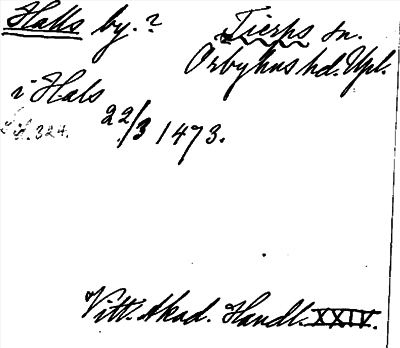 Halls by.? Tierps sn.
Örbyhus hd. Upl.
i Hals
22/3 1473.
s. 324.
Vitt. Akad. Handl. XXIV.